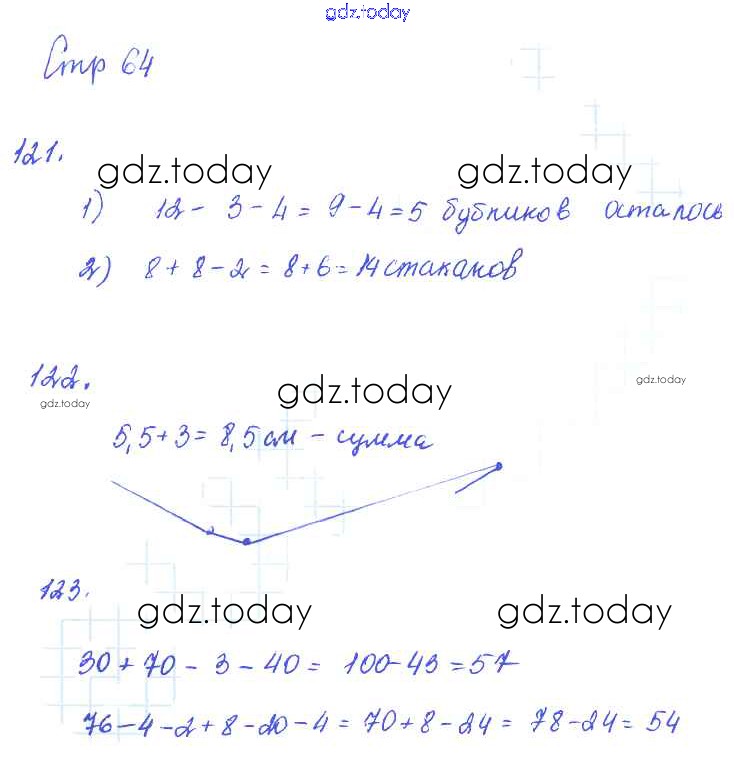 gdz.today
Стр 64
121.
gdz.today gdz.today
1) 12 - 3 - 4 = 9 - 4 = 5 бубликов осталось
2) 8 + 8 - 2 = 8 + 6 = 14 стаканов
gdz.today
122.
gdz.today
gdz.today
5,5 + 3 = 8,5 см - сумма
123.
gdz.today gdz.today
30 + 70 - 3 - 40 = 100 - 43 = 57
76 - 4 - 2 + 8 - 20 - 4 = 70 + 8 - 24 = 78 - 24 = 54